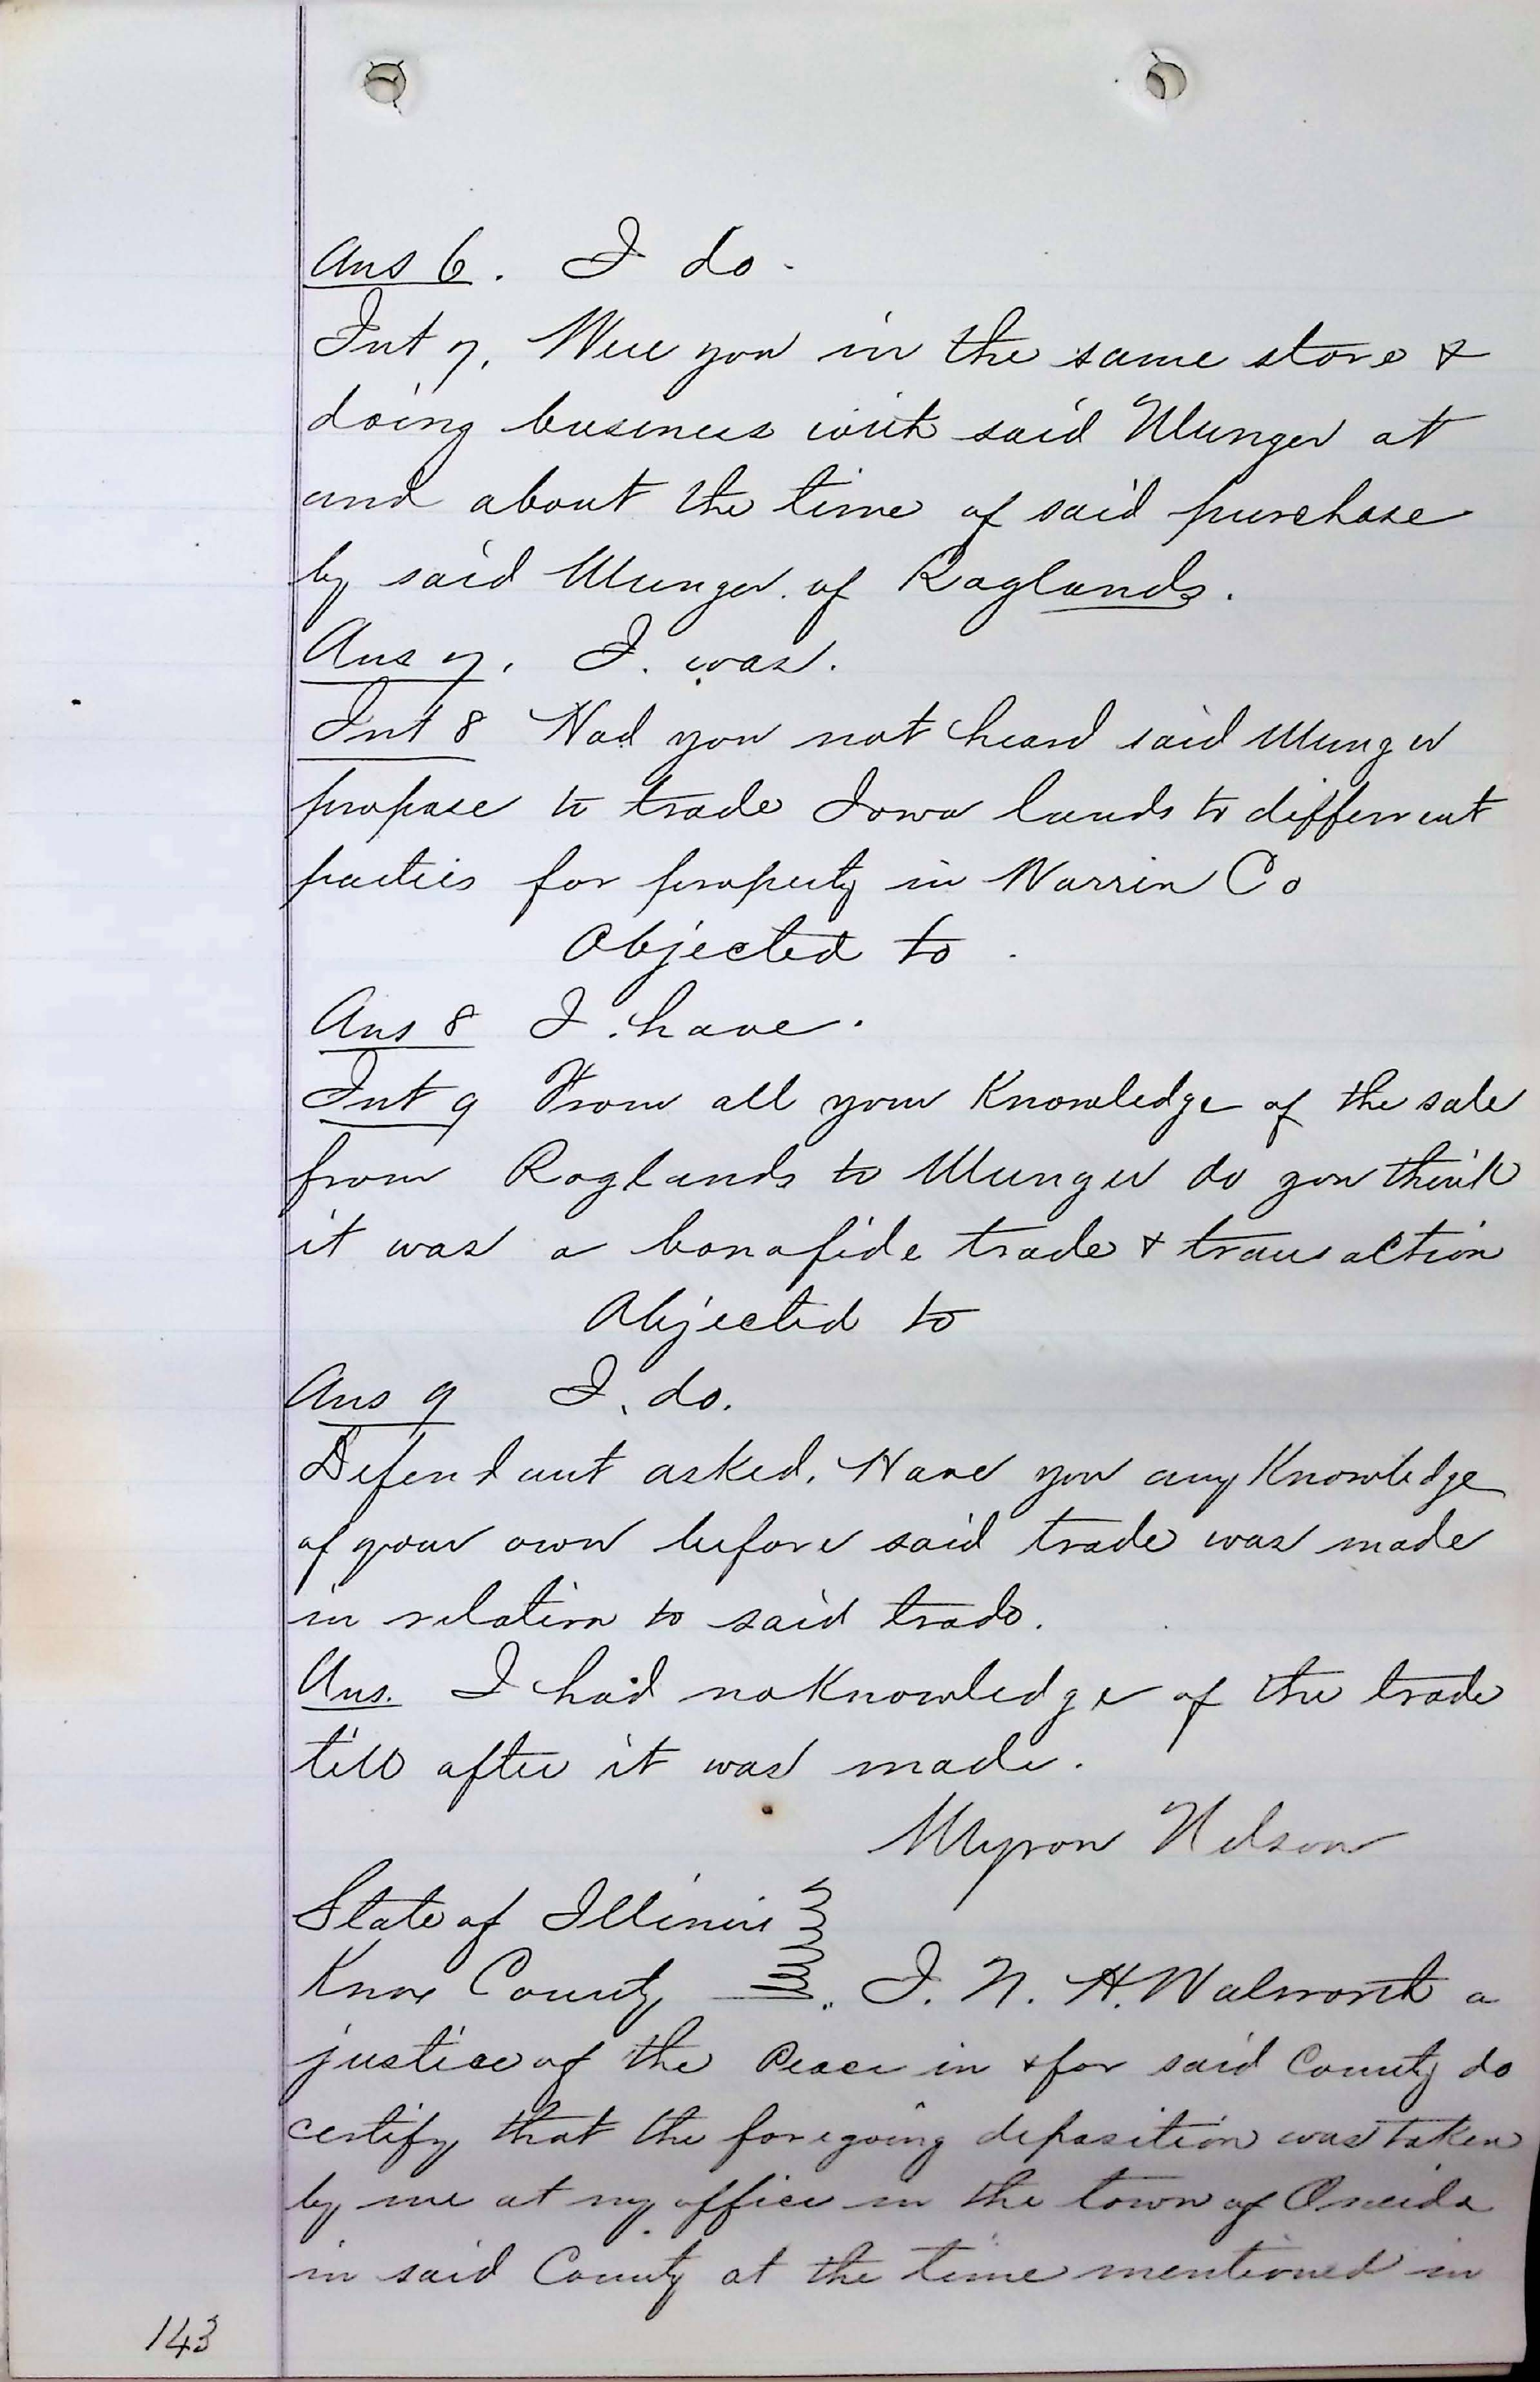 Ans 6. I do.
Int 7. Were you in the same store &
doing business with said Munger at
and about the time of said purchase
by said Munger of Raglands.
Ans 7. I. was.
Int 8 Had you not heard said Munger
propose to trade Iowa lands to different
parties for property in Warrin Co
Objected to.
Ans 8 I have.
Int 9 From all your Knowledge of the sale
from Raglands to Munger do you think
it was a bonafide trade & transaction
Objected to
Ans 9 I. do.
Defendant asked. Have you any Knowledge
of your own before said trade was made
in relation to said trade.
Ans. I had no Knowledge of the trade
till after it was made.
Myron Nelson
State of Illinois
Knox County I. N. H. Walworth a
justice of the Peace in & for said County do
certify that the foregoing deposition was taken
by me at my office in the town of Oneida
in said County at the time mentioned in
143